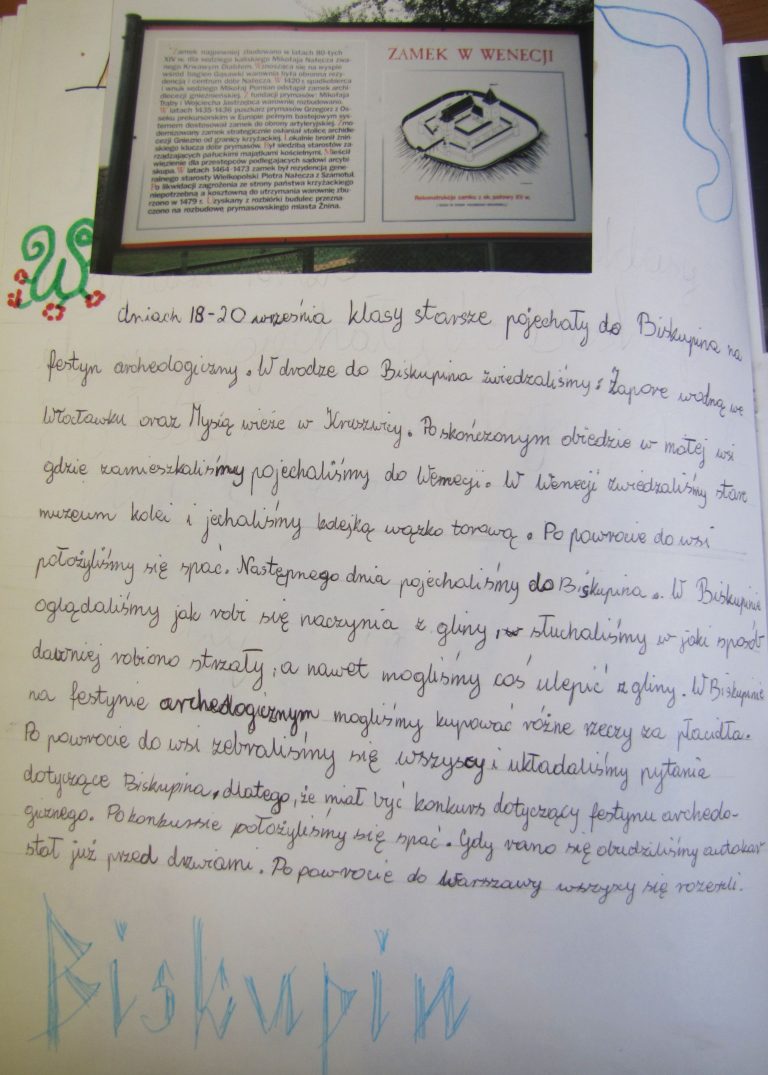 Zamek najpewniej zbudowano w latach 80-tych
XIV w. dla sędziego kaliskiego Mikołaja Nałęcza zwa-
nego Krwawym Diabłem. Wznosząca się na wyspie
wśród bagien Gąsawki warownia była obronną rezy-
dencją i centrum dóbr Nałęcza. W 1420 r. spadkobierca
i wnuk sędziego Mikołaj Pomian odstąpił zamek archi-
diecezji gnieźnieńskiej. Z fundacji prymasów: Mikołaja
Trąby i Wojciecha Jastrzębca warownię rozbudowano.
W latach 1435-1436 puszkarz prymasów Grzegorz z Os-
seku prekursorskim w Europie pełnym bastejowym sys-
temem dostosował zamek do obrony artyleryjskiej. Zmo-
dernizowany zamek strategicznie osłaniał stolicę archidie-
cezji Gniezno od granicy krzyżackiej. Lokalnie bronił żniń-
skiego klucza dóbr prymasów. Był siedzibą starostów za-
rządzających pałuckimi majątkami kościelnymi. Mieścił
więzienie dla przestępców podlegających sądowi arcybi-
skupa. W latach 1464-1473 zamek był rezydencją gene-
ralnego starosty Wielkopolski Piotra Nałęcza z Szamotuł.
Po likwidacji zagrożenia ze strony państwa krzyżackiego
niepotrzebną a kosztowną do utrzymania warownię zbu-
rzono w 1479 r. Uzyskany z rozbiórki budulec przezna-
czono na rozbudowę prymasowskiego miasta Żnina.
ZAMEK W WENECJI
Rekonstrukcja zamku z ok. połowy XV w.
W
dniach 18-20 września klasy starsze pojechały do Biskupina na
festyn archeologiczny. W drodze do Biskupina zwiedzaliśmy: Zaporę wodną we
Włocławku oraz Mysią wieże w Kruszwicy. Po skończonym obiedzie w małej wsi
gdzie zamieszkaliśmy pojechaliśmy do Wenecji. W Wenecji zwiedzaliśmy stare
muzeum kolei i jechaliśmy kolejką wązko torową. Po powrocie do wsi
położyliśmy się spać. Następnego dnia pojechaliśmy do Biskupina. W Biskupinie
oglądaliśmy jak robi się naczynia z gliny, słuchaliśmy w jaki sposób
dawniej robiono strzały, a nawet mogliśmy coś ulepić z gliny. W Biskupinie
na festynie archeologicznym mogliśmy kupować różne rzeczy za płacidła.
Po powrocie do wsi zebraliśmy się wszyscy i układaliśmy pytanie
dotyczące Biskupina, dlatego, że miał być konkurs dotyczący festynu archeolo-
gicznego. Po konkursie położyliśmy się spać. Gdy rano się obudziliśmy autokar
stał już przed drzwiami. Po powrocie do Warszawy wszyscy się rozeszli.
Biskupin